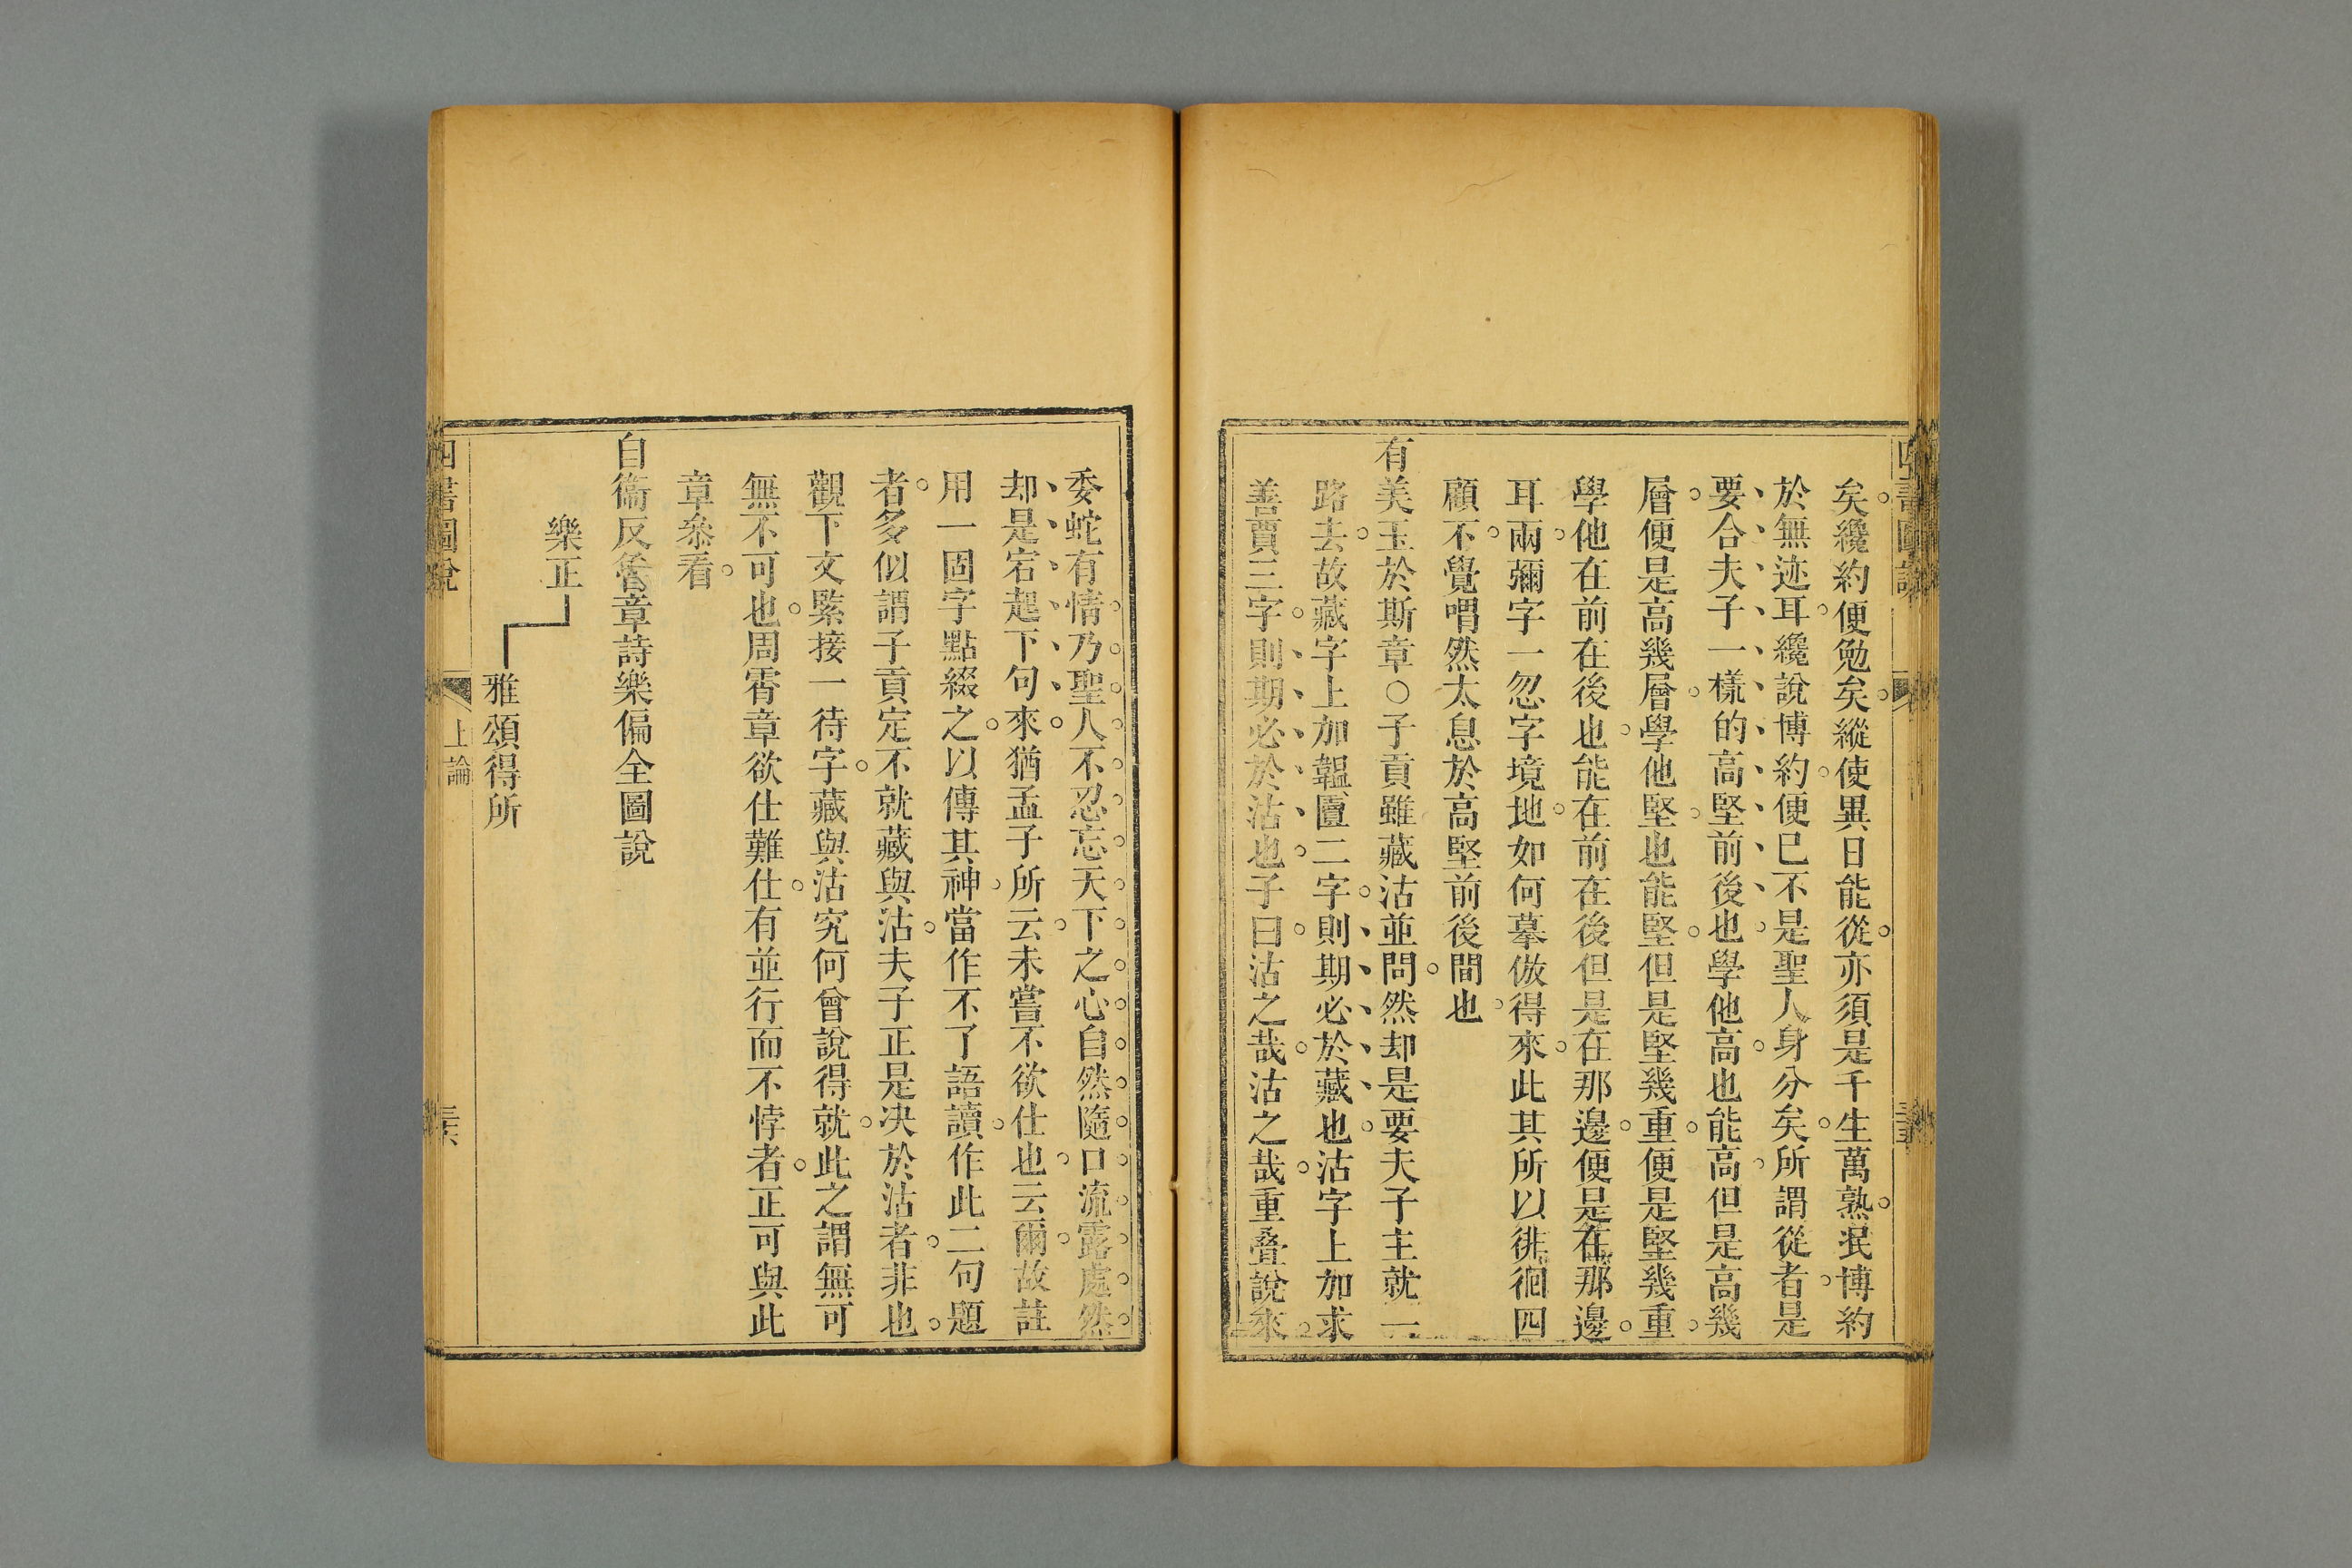 矣纔約便勉矣縱使異日能從亦須是千生萬熟泯博約
於無迹耳纔說博約便已不是聖人身分矣所謂從者是
要合夫子一樣的高堅前後也學他高也能高但是高幾
層便是高幾層學他堅也能堅但是堅幾重便是堅幾重
學他在前在後也能在前在後但是在那邊便是在那邊
耳兩彌字一忽字境地如何摹倣得來此其所以徘徊四
顧不覺喟然太息於高堅前後間也
有美玉於斯章○子貢雖藏沽並問然却是要夫子主就一
路去故藏字上加韞匵二字則期必於藏也沽字上加求
善賈三字則期必於沽也子曰沽之哉沽之哉重疊說來
委蛇有情乃聖人不忍忘天下之心自然隨口流露處然
却是宕起下句來猶孟子所云未嘗不欲仕也云爾故註
用一固字點綴之以傳其神當作不了語讀作此二句題
者多似謂子貢定不就藏與沽夫子正是决於沽者非也
觀下文緊接一待字藏與沽究何曾說得就此之謂無可
無不可也周霄章欲仕難仕有並行而不悖者正可與此
章叅看
自衞反魯章詩樂偏全圖說
樂正
雅頌得所
四書圖說
上論
三六